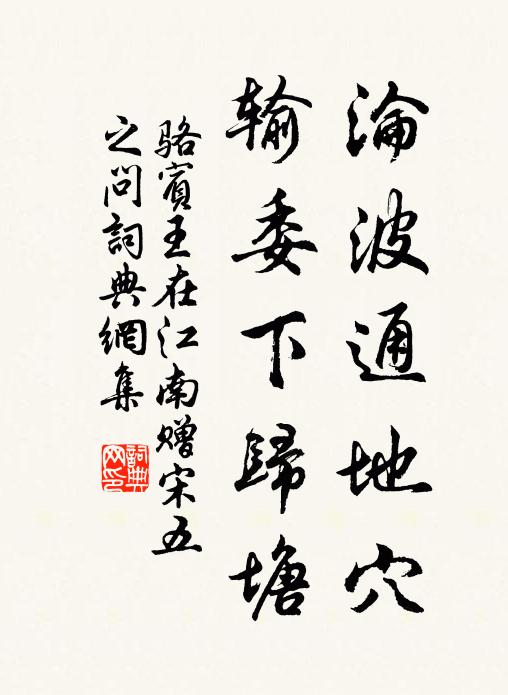 淪波通地穴
輸委下歸塘
駱賓王在江南赠宋五
之问詞典網集
詞典
网印